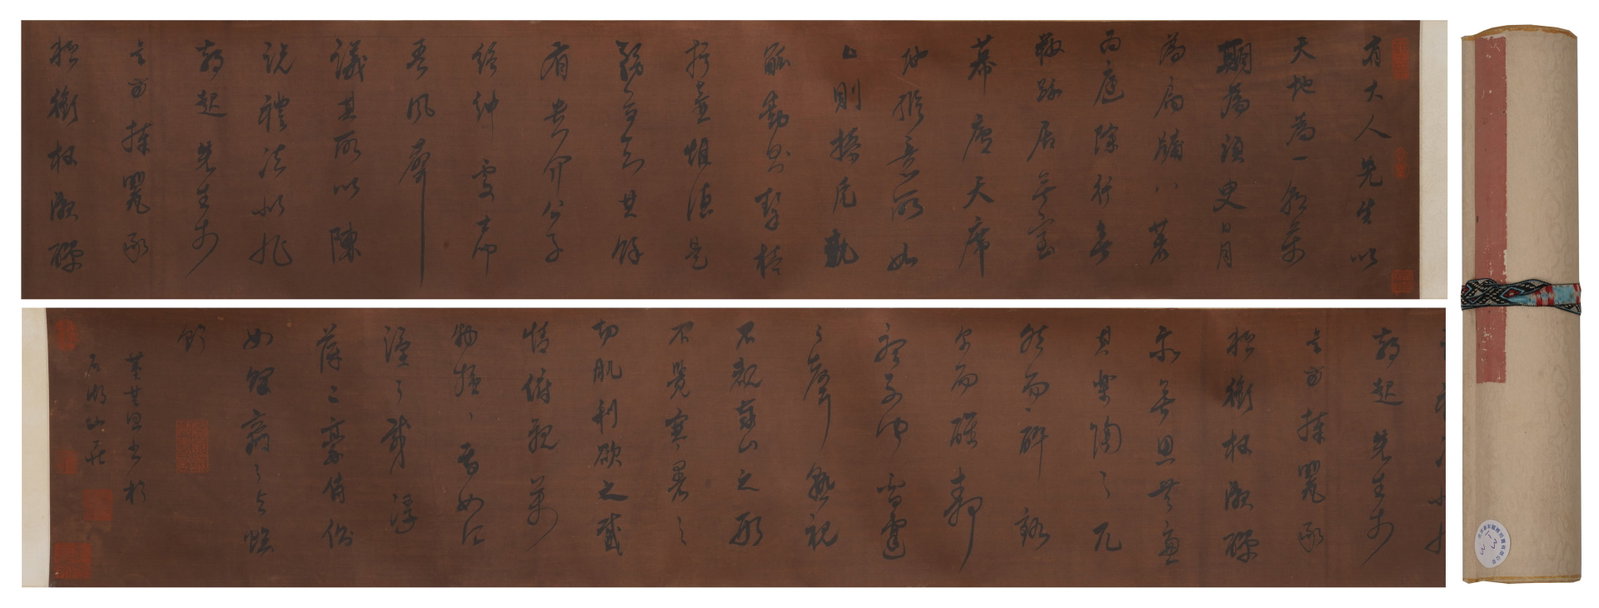 有大人先生以
天地為一朝萬
期為須臾日月
為扃牖八荒
為庭除行無
轍跡居無室
幕廬天席
地縱意所如
止則操卮執
觚動則挈榼
提壺惟酒是
務焉知其餘
有貴介公子
縉紳處士聞
吾風聲
議其所以陳
說禮法是非
鋒起先生於
是方捧罌承
槽銜杯漱醪
鋒起先生於
是方捧罌承
槽銜杯漱醪
無思無慮
其樂陶陶兀
然而醉豁
爾而醒靜
聽不聞雷霆
之聲熟視
不覩泰山之形
不覺寒暑之
切肌利欲之感
情俯觀萬
物擾擾焉如江
漢之載浮
萍二豪侍側
如蜾蠃之與螟
蛉
董其昌書於
石湖山莊